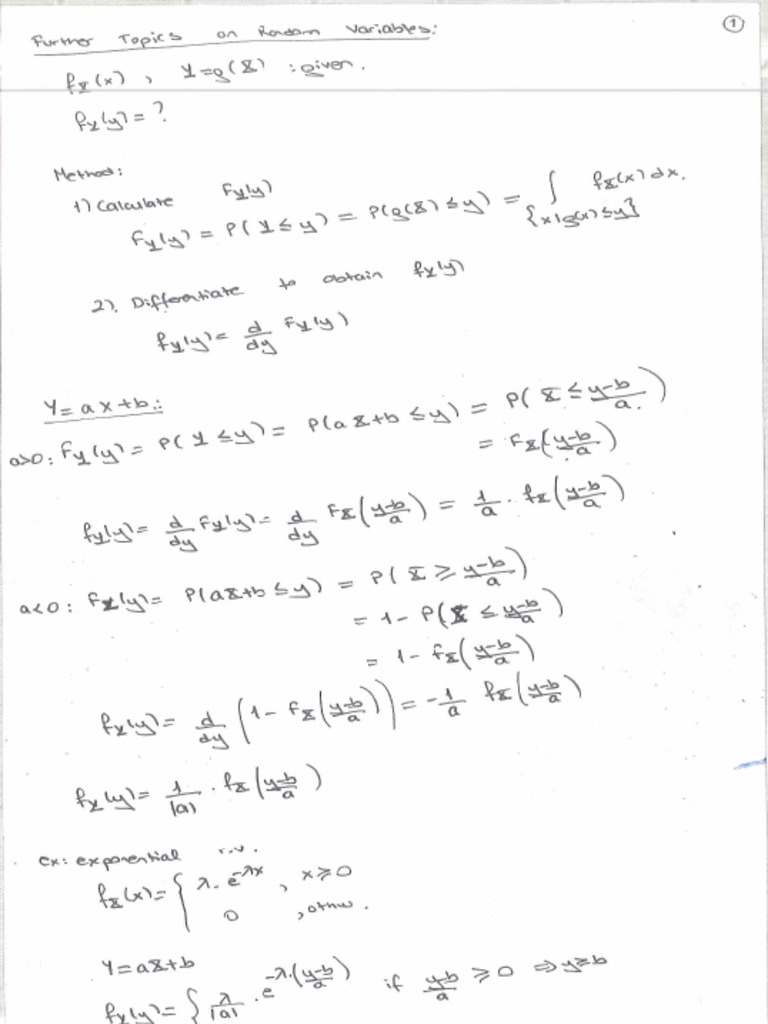 ①
Further Topics on Random Variables:
f_X(x) , Y=g(X) : given.
f_Y(y) = ?
Method:
1) Calculate F_Y(y)
F_Y(y) = P(Y ≤ y) = P(g(X) ≤ y) = ∫_{x|g(x)≤y} f_X(x) dx.
2). Differentiate to obtain f_Y(y)
f_Y(y) = d/dy F_Y(y)
Y = ax+b::
a>0: F_Y(y) = P(Y ≤ y) = P(aX+b ≤ y) = P(X ≤ (y-b)/a.)
= F_X((y-b)/a)
f_Y(y) = d/dy F_Y(y) = d/dy F_X((y-b)/a) = 1/a · f_X((y-b)/a)
a<0: F_Y(y) = P(aX+b ≤ y) = P(X ≥ (y-b)/a)
= 1 - P(X ≤ (y-b)/a)
= 1 - F_X((y-b)/a)
f_Y(y) = d/dy (1 - F_X((y-b)/a)) = -1/a f_X((y-b)/a)
f_Y(y) = 1/|a| · f_X((y-b)/a)
ex: exponential r.v.
f_X(x) = { λ. e^{-λx} , x ≥ 0
0 , othw.
Y = aX+b
f_Y(y) = { λ/|a| · e^{-λ·((y-b)/a)} if (y-b)/a ≥ 0 ⇒ y ≥ b